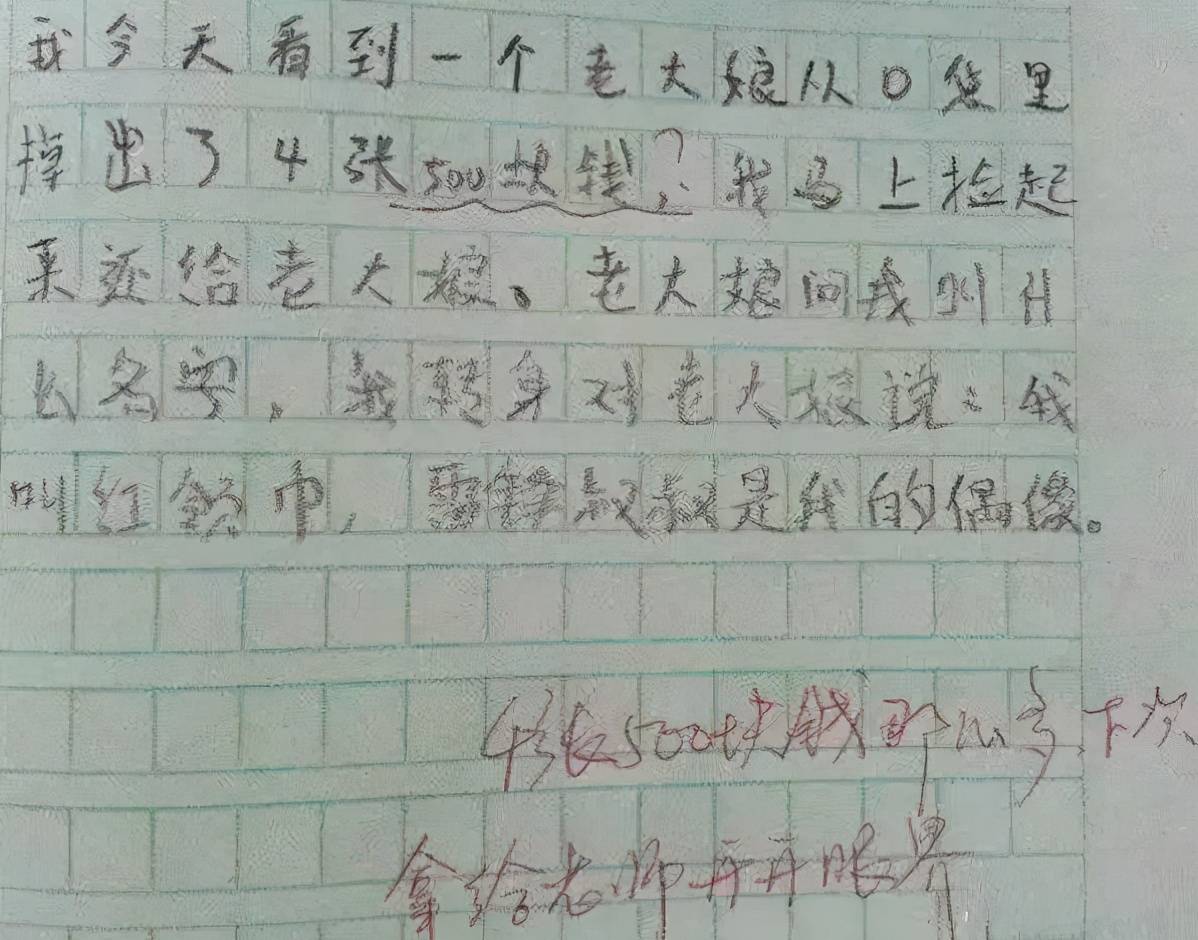 我今天看到一个老大娘从0袋里
掉出了4张500块钱?我马上捡起
来还给老大娘、老大娘问我叫什
么名字,我转身对老大娘说:我
叫红领巾,雷锋叔叔是我的偶像。
4张500块钱那么多下次
拿给老师开开眼界